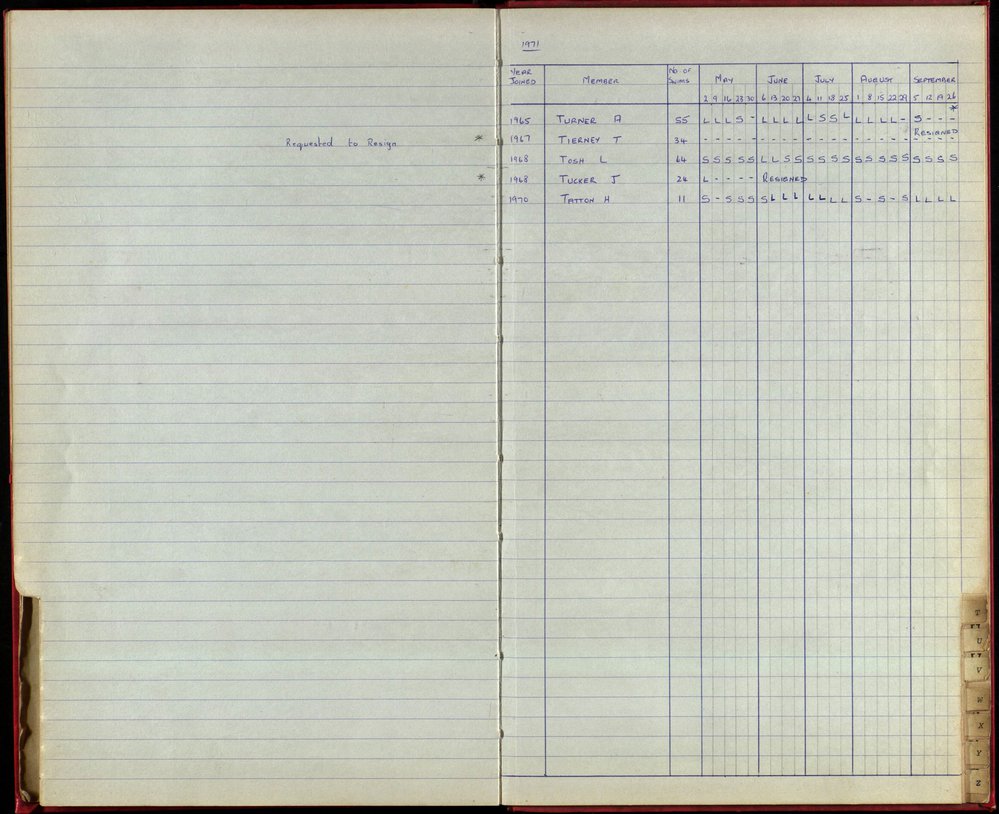 Requested to Resign *
*
1971
YEAR JOINED MEMBER NO OF SWIMS MAY JUNE JULY AUGUST SEPTEMBER
2 9 16 23 30 6 13 20 27 4 11 18 25 1 8 15 22 29 5 12 19 26
*
1965 TURNER A 55 L L L S - L L L L L S S L L L L L - S - - -
RESIGNED
1967 TIERNEY T 34 - - - - - - - - - - - - - - - - - - - - - -
1968 TOSH L 64 S S S S S L L S S S S S S S S S S S S S S S
1968 TUCKER J 24 L - - - - RESIGNED
1970 TATTON H 11 S - S S S S L L L L L L L S - S - S L L L L
T
U
V
W
X
Y
Z